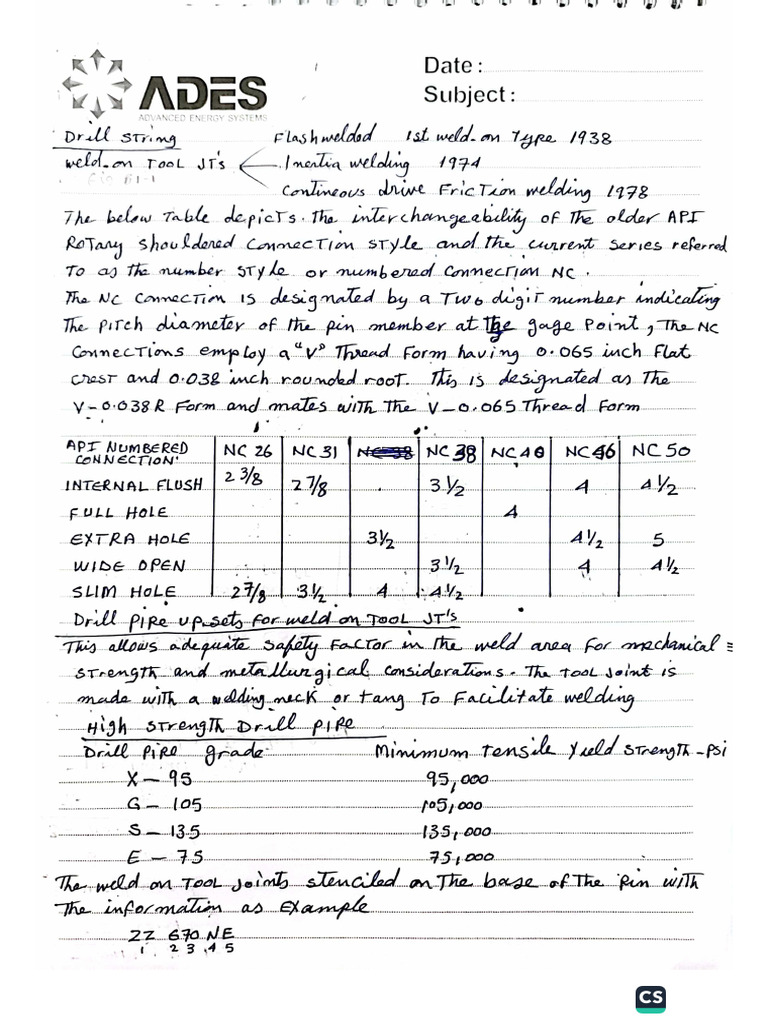 ADES
ADVANCED ENERGY SYSTEMS
Date :
Subject :
Drill String Flashwelded 1st weld-on Type 1938
weld-on TOOL JT's Inertia welding 1974
Contineous drive Friction welding 1978
The below Table depicts the interchangeability of the older API
Rotary shouldered connection style and the current series referred
To as the number style or numbered connection NC.
The NC connection is designated by a Two digit number indicating
The pitch diameter of the pin member at The gage Point, The NC
Connections employ a "V" Thread Form having 0.065 inch Flat
crest and 0.038 inch rounded root. This is designated as The
V-0.038 R Form and mates with The V-0.065 Thread Form
API NUMBERED CONNECTION NC 26 NC 31 NC 38 NC 40 NC 46 NC 50
INTERNAL FLUSH 2 3/8 2 7/8 3 1/2 4 4 1/2
FULL HOLE 4
EXTRA HOLE 3 1/2 4 1/2 5
WIDE OPEN 3 1/2 4 4 1/2
SLIM HOLE 2 7/8 3 1/2 4 4 1/2
Drill PIPE up-sets for weld on TOOL JT's
This allows adequate safety factor in the weld area for mechanical
strength and metallurgical considerations. The TOOL joint is
made with a welding neck or tang To Facilitate welding
High STRENGTH Drill PIPE
Drill Pipe grade Minimum tensile Yield strength-PSI
X-95 95,000
G-105 105,000
S-135 135,000
E-75 75,000
The weld on TOOL joints stenciled on The base of The Pin with
The information as Example
ZZ 670 NE
1 2 3 4 5
CS